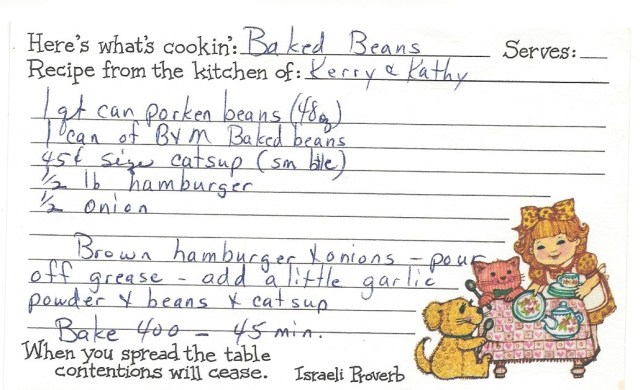 Here's what's cookin': Baked Beans Serves:
Recipe from the kitchen of: Kerry & Kathy
1 qt can porken beans (48oz)
1 can of B&M Baked beans
45¢ size catsup (sm btle)
1/2 lb hamburger
1/2 onion
Brown hamburger & onions - pour
off grease - add a little garlic
powder & beans & catsup
Bake 400 - 45 min.
When you spread the table
contentions will cease. Israeli Proverb